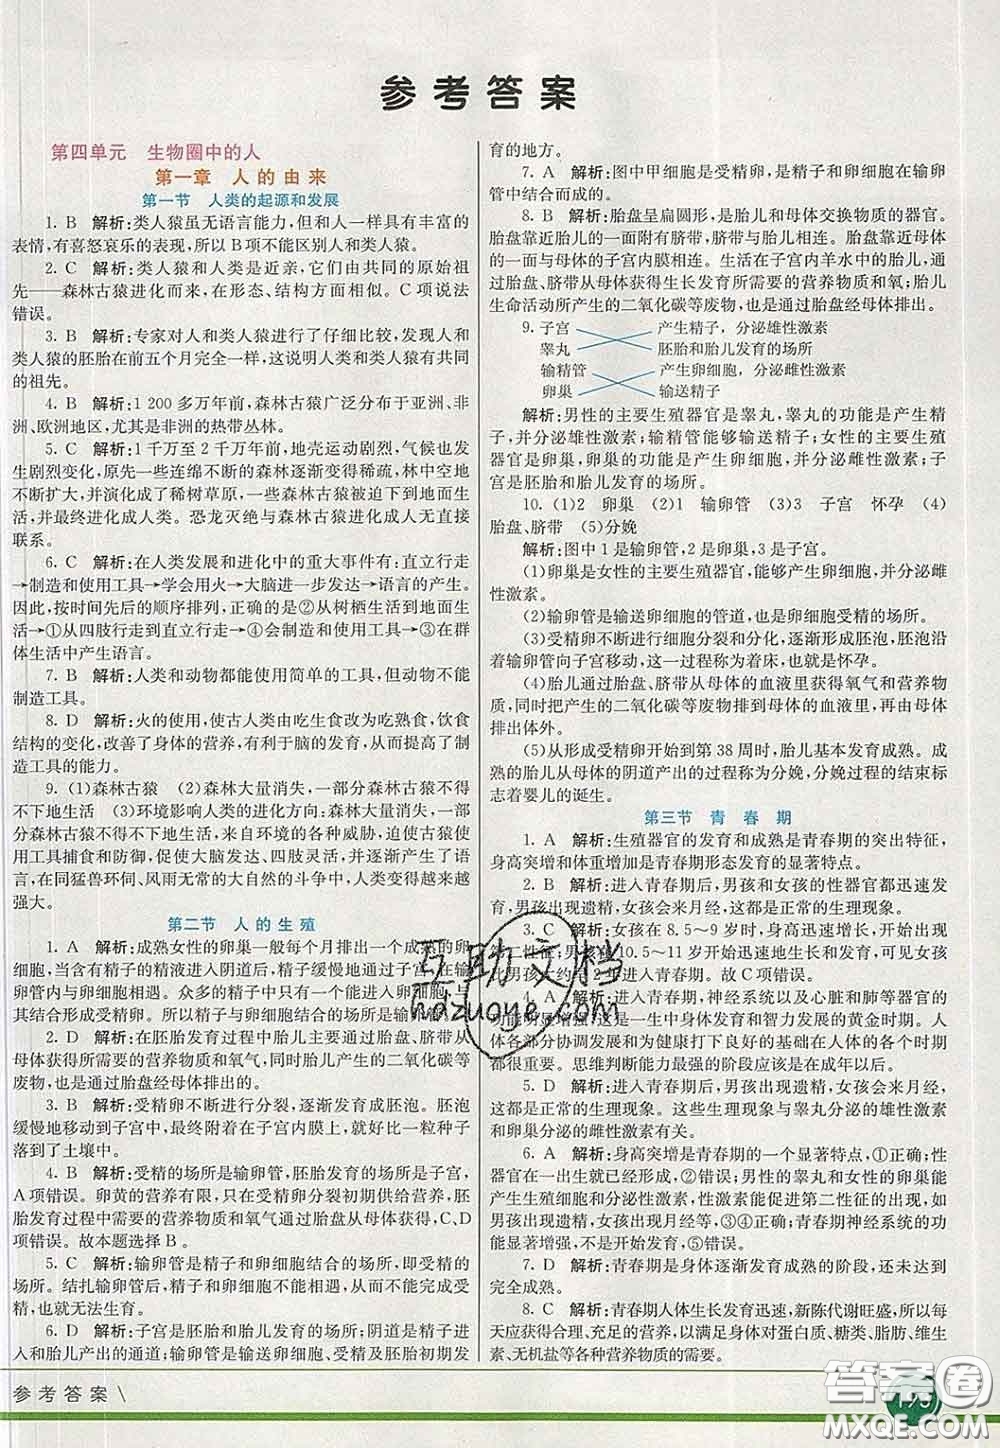 参考答案
第四单元 生物圈中的人
第一章 人的由来
第一节 人类的起源和发展
1. B 解析:类人猿虽无语言能力,但和人一样具有丰富的
表情,有喜怒哀乐的表现,所以 B 项不能区别人和类人猿。
2. C 解析:类人猿和人类是近亲,它们由共同的原始祖
先——森林古猿进化而来,在形态、结构方面相似。C 项说法
错误。
3. B 解析:专家对人和类人猿进行了仔细比较,发现人和
类人猿的胚胎在前五个月完全一样,这说明人类和类人猿有共同
的祖先。
4. B 解析:1 200 多万年前,森林古猿广泛分布于亚洲、非
洲、欧洲地区,尤其是非洲的热带丛林。
5. C 解析:1 千万至 2 千万年前,地壳运动剧烈,气候也发
生剧烈变化,原先一些连绵不断的森林逐渐变得稀疏,林中空地
不断扩大,并演化成了稀树草原,一些森林古猿在这里生活下来,
并最终进化成人类。恐龙灭绝与森林古猿进化成人类无直接
联系。
6. C 解析:在人类发展和进化中的重大事件有:直立行走
→制造和使用工具→学会用火→大脑进一步发达→语言的产生。
因此,按时间先后的顺序排列,正确的是②从树栖生活到地面生
活→①从四肢行走到直立行走→④会制造和使用工具→③在群
体生活中产生语言。
7. B 解析:人类和动物都能使用简单的工具,但动物不能
制造工具。
8. D 解析:火的使用,使古人类由吃生食改为吃熟食,饮食
结构的变化,改善了身体的营养,有利于脑的发育,从而提高了制
造工具的能力。
9. (1)森林古猿 (2)森林大量消失,一部分森林古猿不得
不下地生活 (3)环境影响人类的进化方向;森林大量消失,一部
分森林古猿不得不下地生活,来自环境的各种影响,迫使古猿手
脚并用去捕食和防御,促使大脑发达、四肢灵活,并逐渐直立行
走,在同猛兽环伺、风雨无常的大自然的斗争中,人类变得越来越
强大。
第二节 人的生殖
1. A 解析:成熟女性的卵巢一般每个月排出一个成熟的卵
细胞,当含有精子的精液进入阴道后,精子缓慢地通过子宫,在输
卵管内与卵细胞相遇。众多的精子中只有一个能进入卵细胞,与
其结合形成受精卵。所以精子与卵细胞结合的场所是输卵管。
2. D 解析:在胚胎发育过程中胎儿主要通过胎盘、脐带从
母体获得所需要的营养物质和氧气,同时胎儿产生的二氧化碳等
废物,也是通过胎盘经母体排出的。
3. B 解析:受精卵不断进行分裂,逐渐发育成胚泡。胚泡
缓慢地移动到子宫中,最终附着在子宫内膜上,就好比一粒种子
落到了土壤中。
4. B 解析:受精的场所是输卵管,胚胎发育的场所是子宫,
A 项错误。卵黄的营养有限,只在受精卵分裂初期供给营养,胚
胎发育过程中需要的营养物质和氧气通过胎盘从母体获得,C、D
项错误。故本题选择 B。
5. C 解析:输卵管是精子和卵细胞结合的场所,即受精的
场所。结扎输卵管后,精子和卵细胞不能相遇,从而不能完成受
精,也就无法生育。
6. D 解析:子宫是胚胎和胎儿发育的场所;阴道是精子进
入和胎儿产出的通道;输卵管是输送卵细胞、受精及胚胎初期发
育的地方。
7. A 解析:图中甲细胞是受精卵,是精子和卵细胞在输卵
管中结合而成的。
8. B 解析:胎盘呈扁圆形,是胎儿和母体交换物质的器官。
胎盘靠近胎儿的一面附有脐带,脐带与胎儿相连。胎盘靠近母体
的一面与母体的子宫内膜相连。生活在子宫内羊水中的胎儿,通
过胎盘、脐带从母体获得生长发育所需要的营养物质和氧;胎儿
生命活动所产生的二氧化碳等废物,也是通过胎盘经母体排出。
9. 子宫 产生精子,分泌雄性激素
睾丸 胚胎和胎儿发育的场所
输精管 产生卵细胞,分泌雌性激素
卵巢 输送精子
解析:男性的主要生殖器官是睾丸,睾丸的功能是产生精
子,并分泌雄性激素;输精管能够输送精子;女性的主要生殖
器官是卵巢,卵巢的功能是产生卵细胞,并分泌雌性激素;子
宫是胚胎和胎儿发育的场所。
10. (1)2 卵巢 (2)1 输卵管 (3)3 子宫 怀孕 (4)
胎盘、脐带 (5)分娩
解析:图中 1 是输卵管,2 是卵巢,3 是子宫。
(1)卵巢是女性的主要生殖器官,能够产生卵细胞,并分泌雌
性激素。
(2)输卵管是输送卵细胞的管道,也是卵细胞受精的场所。
(3)受精卵不断进行细胞分裂和分化,逐渐形成胚泡,胚泡沿
着输卵管向子宫移动,这一过程称为着床,也就是怀孕。
(4)胎儿通过胎盘、脐带从母体的血液里获得氧气和营养物
质,同时把产生的二氧化碳等废物排到母体的血液里,再由母体
排出体外。
(5)从形成受精卵开始到第 38 周时,胎儿基本发育成熟。成
熟的胎儿从母体的阴道产出的过程称为分娩,分娩过程的结束标
志着婴儿的诞生。
第三节 青春期
1. A 解析:生殖器官的发育和成熟是青春期的突出特征,
身高突增和体重增加是青春期形态发育的显著特点。
2. B 解析:进入青春期后,男孩和女孩的性器官都迅速发
育,男孩出现遗精,女孩会来月经,这是正常的生理现象。
3. C 解析:女孩在 8.5~9 岁时,身高等方面开始出现第
二性征,男孩在 10.5~11 岁开始迅速地生长和发育,可见女孩
比男孩大约早 2 年进入青春期。故 C 项错误。
4. A 解析:进入青春期后,神经系统以及心脏和肺等器官的
功能明显增强,这是一生中身体发育和智力发展的黄金时期。人
体各部分协调发展和为健康打下良好的基础在人体的各个时期
都很重要。思维判断能力最强的阶段应该是在成年以后。
5. D 解析:进入青春期后,男孩出现遗精,女孩会来月经,
这都是正常的生理现象。这些生理现象与睾丸分泌的雄性激素
和卵巢分泌的雌性激素有关。
6. A 解析:身高突增是青春期的一个显著特点,①正确;性
器官在一出生就已经形成,②错误;男性的睾丸和女性的卵巢能
产生生殖细胞和分泌性激素,性激素能促进第二性征的出现,如
男孩出现遗精,女孩出现月经,③④正确;青春期神经系统的功能
显著增强,不是开始发育,⑤错误。
7. D 解析:青春期是身高逐渐发育成熟的阶段,还未达到
完全成熟。
8. C 解析:青春期人体生长发育迅速,新陈代谢旺盛,所以每
天应获得合理、充足的营养,以满足身体对蛋白质、糖类、脂肪、维生
素、无机盐等各种营养物质的需要。
互助文档
hdzuoye.com
参考答案 \
答案圈
MXQE.COM